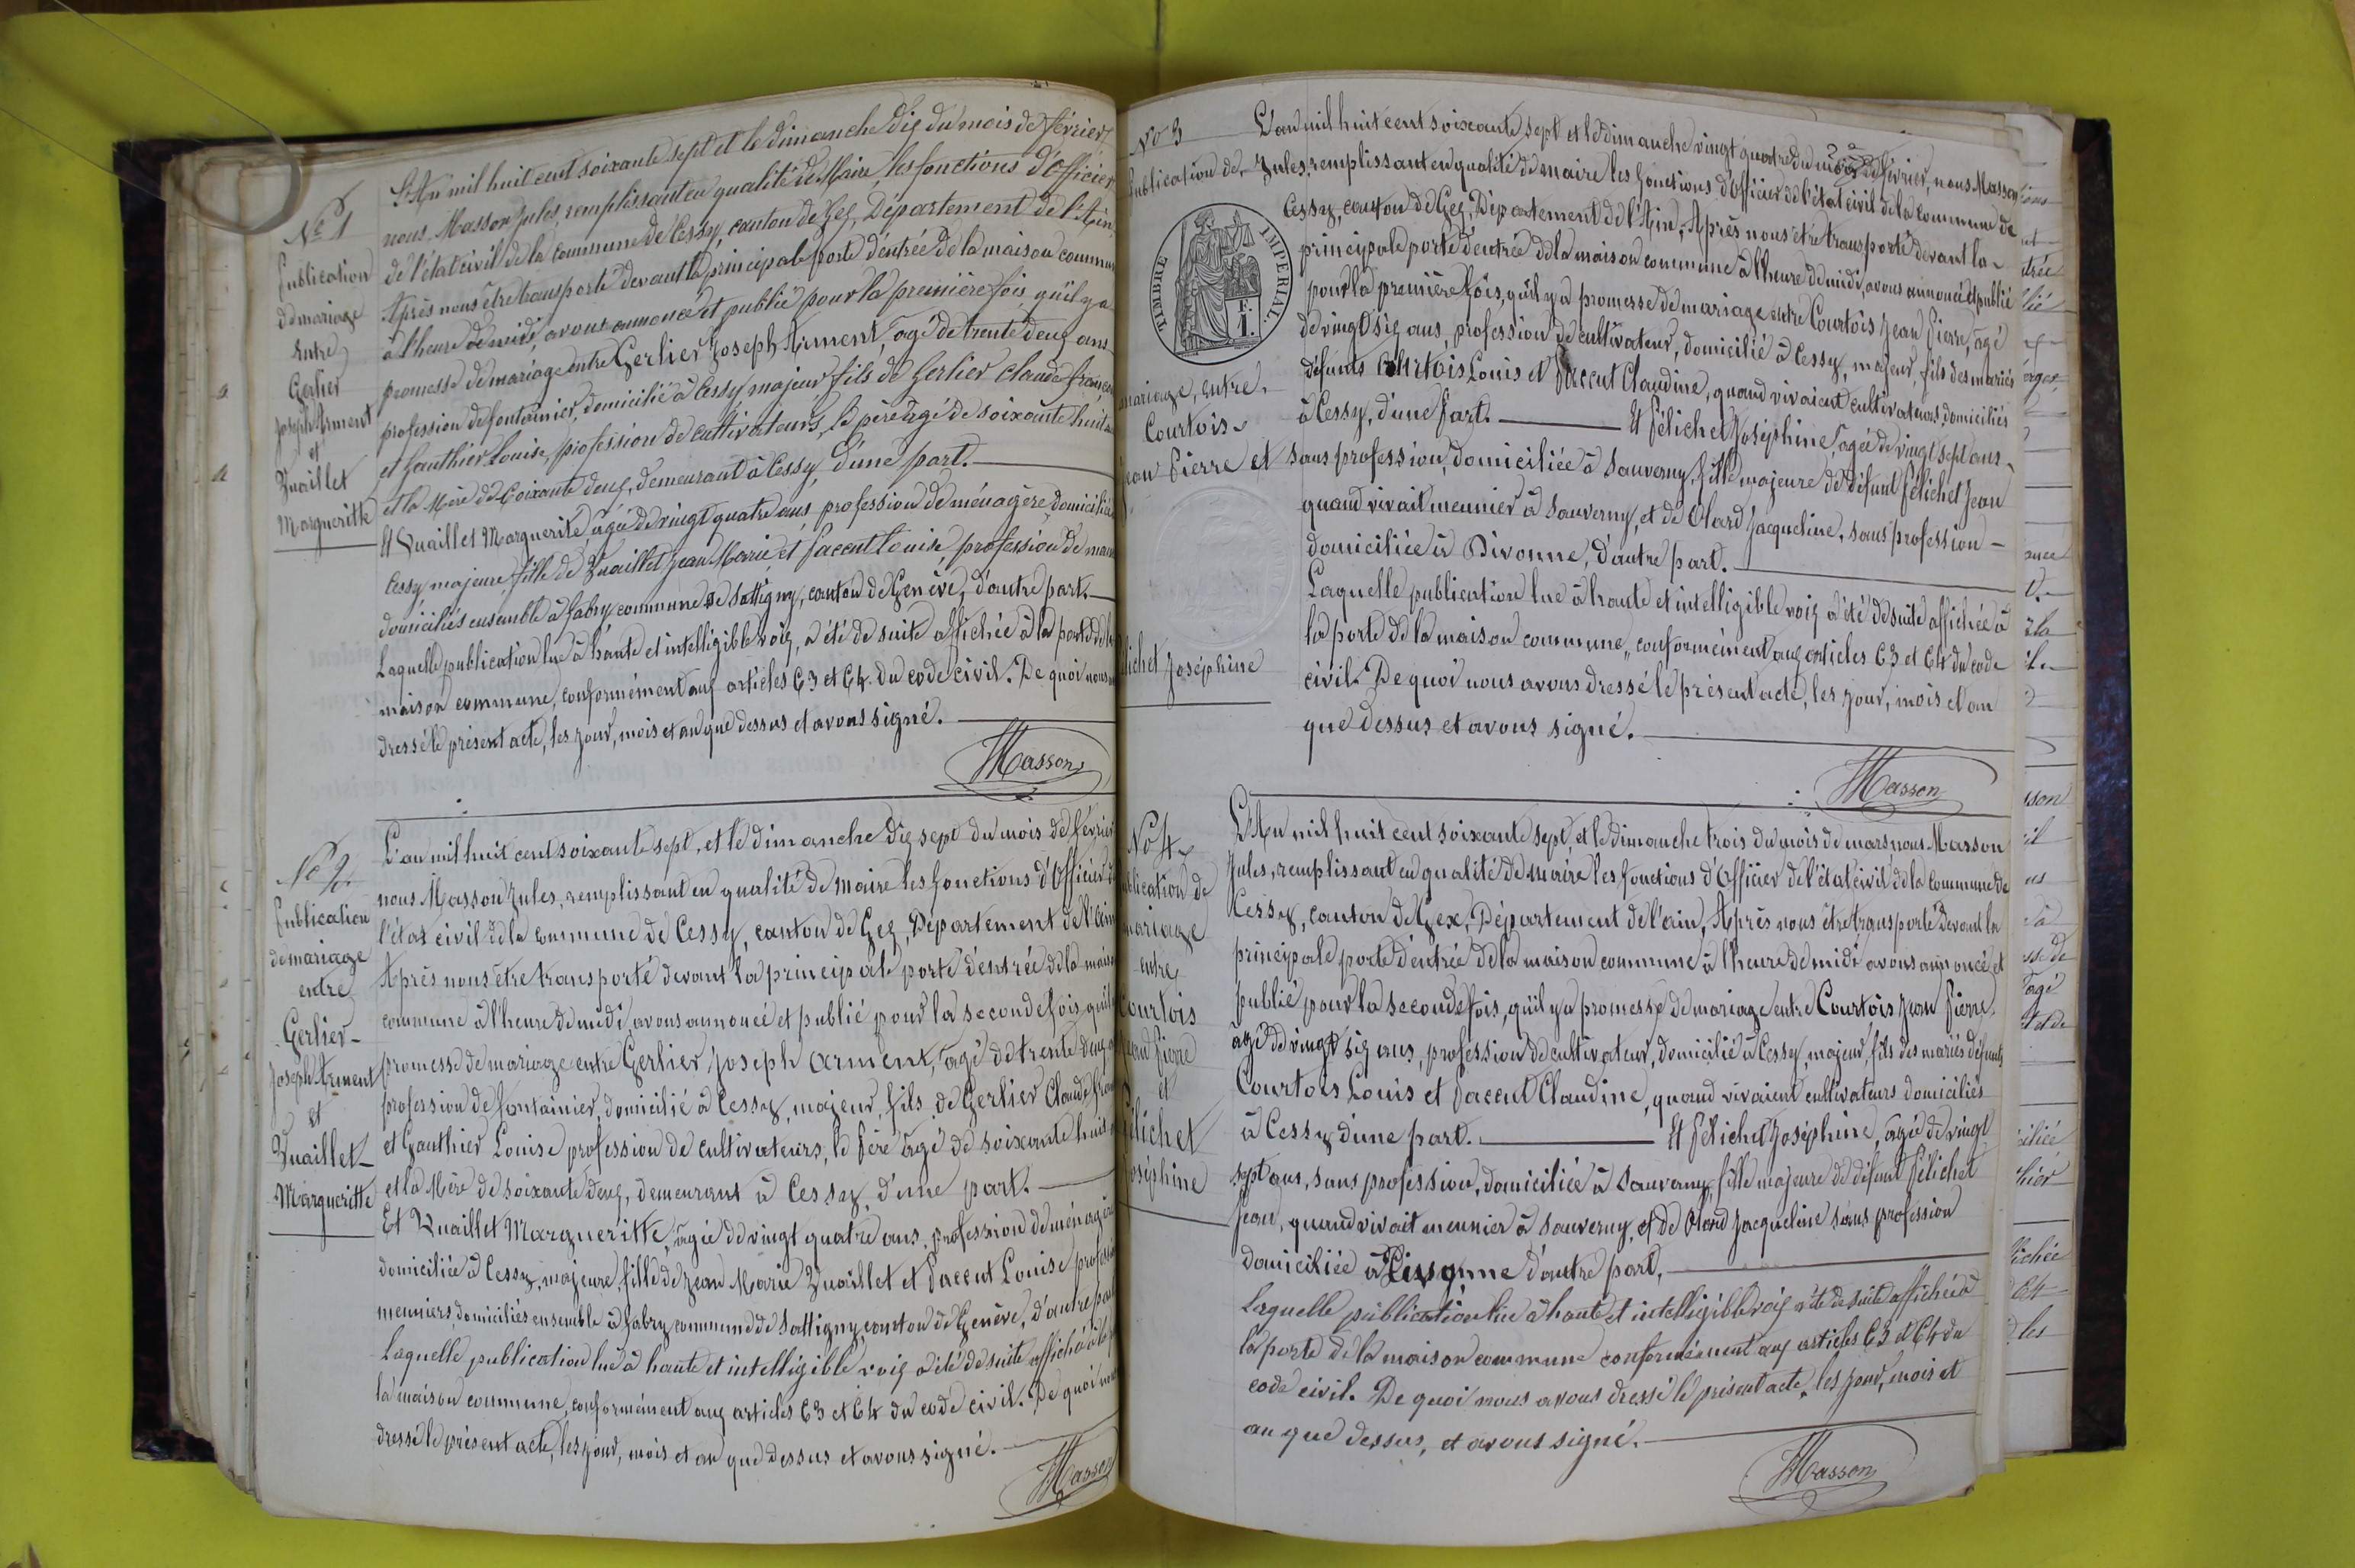 Nº 1
Publication
de mariage
Entre
Gerlier
Joseph Arment
et
Vuaillet
Margueritte
L'An mil huit cent soixante sept et le dimanche dix du mois de février
nous Masson Jules, remplissant en qualité de Maire, les fonctions d'Officier
de l'état civil de la commune de Cessy, canton de Gex, Département de l'Ain,
Après nous être transporté devant la principale porte d'entrée de la maison commune
à l'heure de midi, avons annoncé et publié pour la première fois, qu'il y a
promesse de mariage entre Gerlier Joseph Arment, agé de trente deux ans
profession de fontainier, domicilié à Cessy, majeur fils de Gerlier Claude
et Gauthier Louise, profession de cultivateurs, le père agé de soixante huit
et la Mère de soixante deux, demeurant à Cessy, d'une part.
Et Vuaillet Margueritte, agée de vingt quatre ans profession de ménagère domiciliée
Cessy, majeure, fille de Vuaillet Jean Marie, et Paccut Louise profession de
domiciliés ensemble à fabry, commune de Sattigny, canton de Genève, d'autre part.
Laquelle publication lue à haute et intelligible voix, a été de suite affichée à la porte de la
maison commune, conformément aux articles 63 et 64 du code civil. De quoi nous
dressé le présent acte, les jour, mois et an que dessus et avons signé.
Masson
Nº 2
Publication
de mariage
entre
Gerlier
Joseph Arment
et
Vuaillet
Margueritte
L'an mil huit cent soixante sept, et le dimanche dix sept du mois de février
nous Masson Jules, remplissant en qualité de maire les fonctions d'Officier
l'état civil de la commune de Cessy, canton de Gex, Département de l'Ain
Après nous être transporté devant la principale porte d'entrée de la maison
commune à l'heure de midi, avons annoncé et publié pour la seconde fois, qu'il
promesse de mariage entre Gerlier Joseph Arment, agé de trente deux
profession de fontainier, domicilié à Cessy, majeur, fils de Gerlier Claude
et Gauthier Louise profession de cultivateurs, le Père agé de soixante huit
et la Mère de soixante deux, demeurant à Cessy, d'une part.
Et Vuaillet Margueritte, agée de vingt quatre ans, profession de ménagère
domiciliée à Cessy, majeure, fille de Jean Marie Vuaillet et Paccut Louise
meuniers, domiciliés ensemble à fabry commune de Sattigny canton de Genève, d'autre part
Laquelle publication lue à haute et intelligible voix a été de suite affichée à la
la maison commune, conformément aux articles 63 et 64 du code civil. De quoi nous
dressé le présent acte, les jour, mois et an que dessus et avons signé.
Masson
Nº 3
Publication de
TIMBRE IMPERIAL
F. 1.
mariage, entre
Courtois
Jean Pierre et
Joséphine
22
L'an mil huit cent soixante sept et le dimanche vingt quatre du mois de février, nous Masson
Jules, remplissant en qualité de maire les fonctions d'Officier de l'état civil de la commune de
Cessy, canton de Gex, Département de l'Ain, Après nous être transporté devant la
principale porte d'entrée de la maison commune à l'heure de midi, avons annoncé et publié
pour la première fois, qu'il y a promesse de mariage entre Courtois Jean Pierre, agé
de vingt six ans, profession de cultivateur, domicilié à Cessy, majeur, fils des mariés
défunts Courtois Louis et Paccut Claudine, quand vivaient cultivateurs domiciliés
à Cessy, d'une part. Et Félichet Joséphine, agée de vingt sept ans
sans profession, domiciliée à Sauverny, fille majeure de défunt Félichet Jean
quand vivait meunier à Sauverny, et de Olard Jacqueline, sans profession
domiciliée à Divonne, d'autre part.
Laquelle publication lue à haute et intelligible voix a été de suite affichée à
la porte de la maison commune, conformément aux articles 63 et 64 du code
civil. De quoi nous avons dressé le présent acte, les jour, mois et an
que dessus et avons signé.
Masson
Nº 4
Publication de
mariage
entre
Courtois
Jean Pierre
et
Félichet
Joséphine
L'An mil huit cent soixante sept, et le dimanche trois du mois de mars nous Masson
Jules, remplissant en qualité de maire les fonctions d'Officier de l'état civil de la commune de
Cessy, canton de Gex, Département de l'ain, Après nous être transporté devant la
principale porte d'entrée de la maison commune à l'heure de midi avons annoncé et
publié pour la seconde fois, qu'il y a promesse de mariage entre Courtois Jean Pierre,
agé de vingt six ans, profession de cultivateur, domicilié à Cessy, majeur, fils des mariés défunts
Courtois Louis et Paccut Claudine, quand vivaient cultivateurs domiciliés
à Cessy d'une part. Et Félichet Joséphine, agée de vingt
sept ans, sans profession, domiciliée à Sauverny, fille majeure de défunt Félichet
Jean, quand vivait meunier à Sauverny, et de Olard Jacqueline sans profession
domiciliée à Divonne d'autre part.
Laquelle publication lue à haute et intelligible voix a été de suite affichée à
la porte de la maison commune conformément aux articles 63 et 64 du
code civil. De quoi nous avons dressé le présent acte, les jour, mois et
an que dessus, et avons signé.
Masson